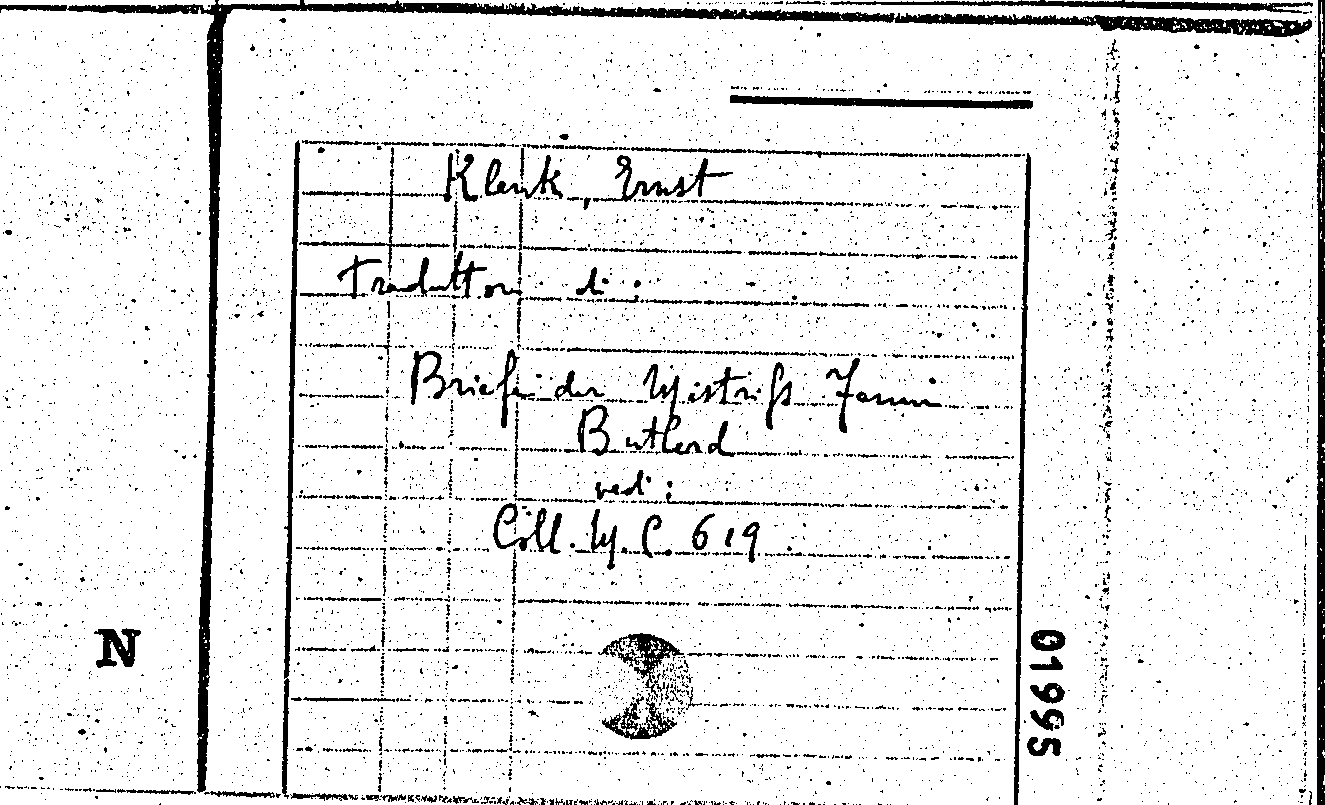 Klenk, Ernst
Traduttore di:
Briefe der Mistriß Fanni
Butlerd
vedi:
Coll. M. C. 619
N
019995